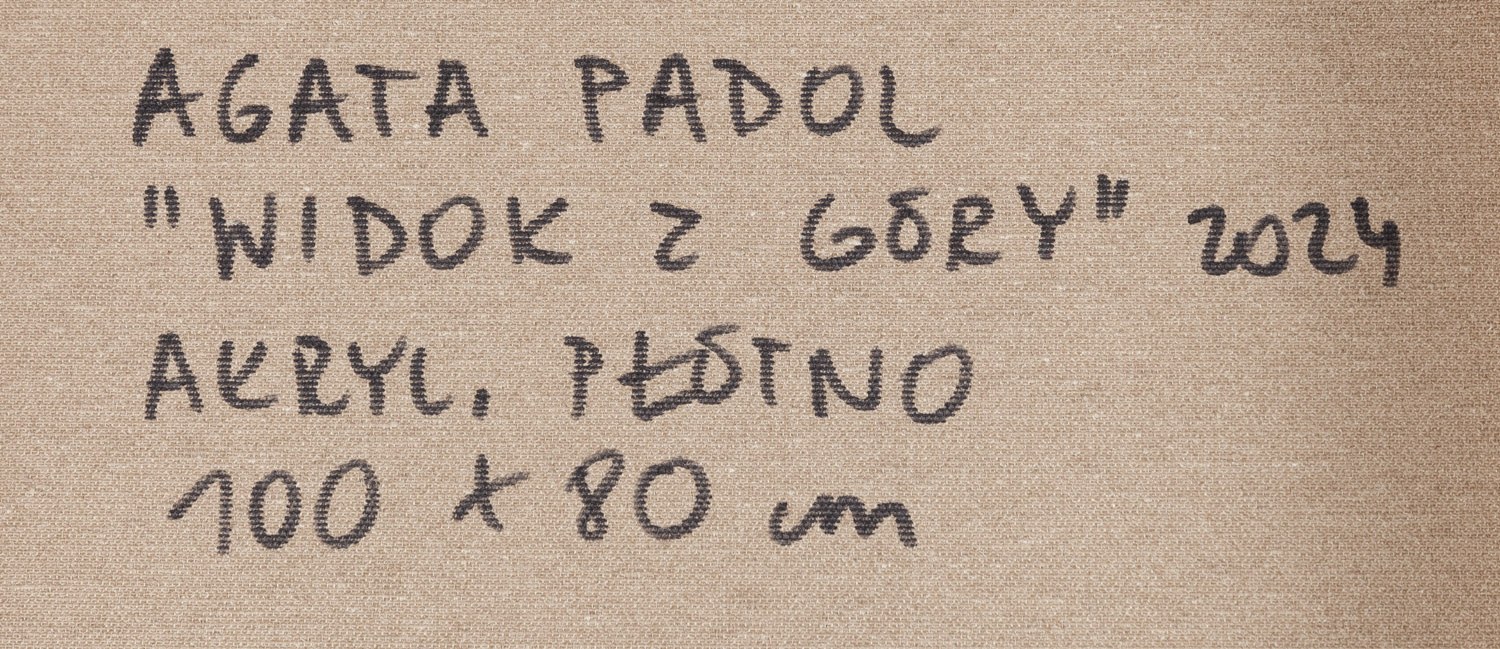 AGATA PADOL
"WIDOK Z GÓRY" 2024
AKRYL, PŁÓTNO
100 x 80 cm